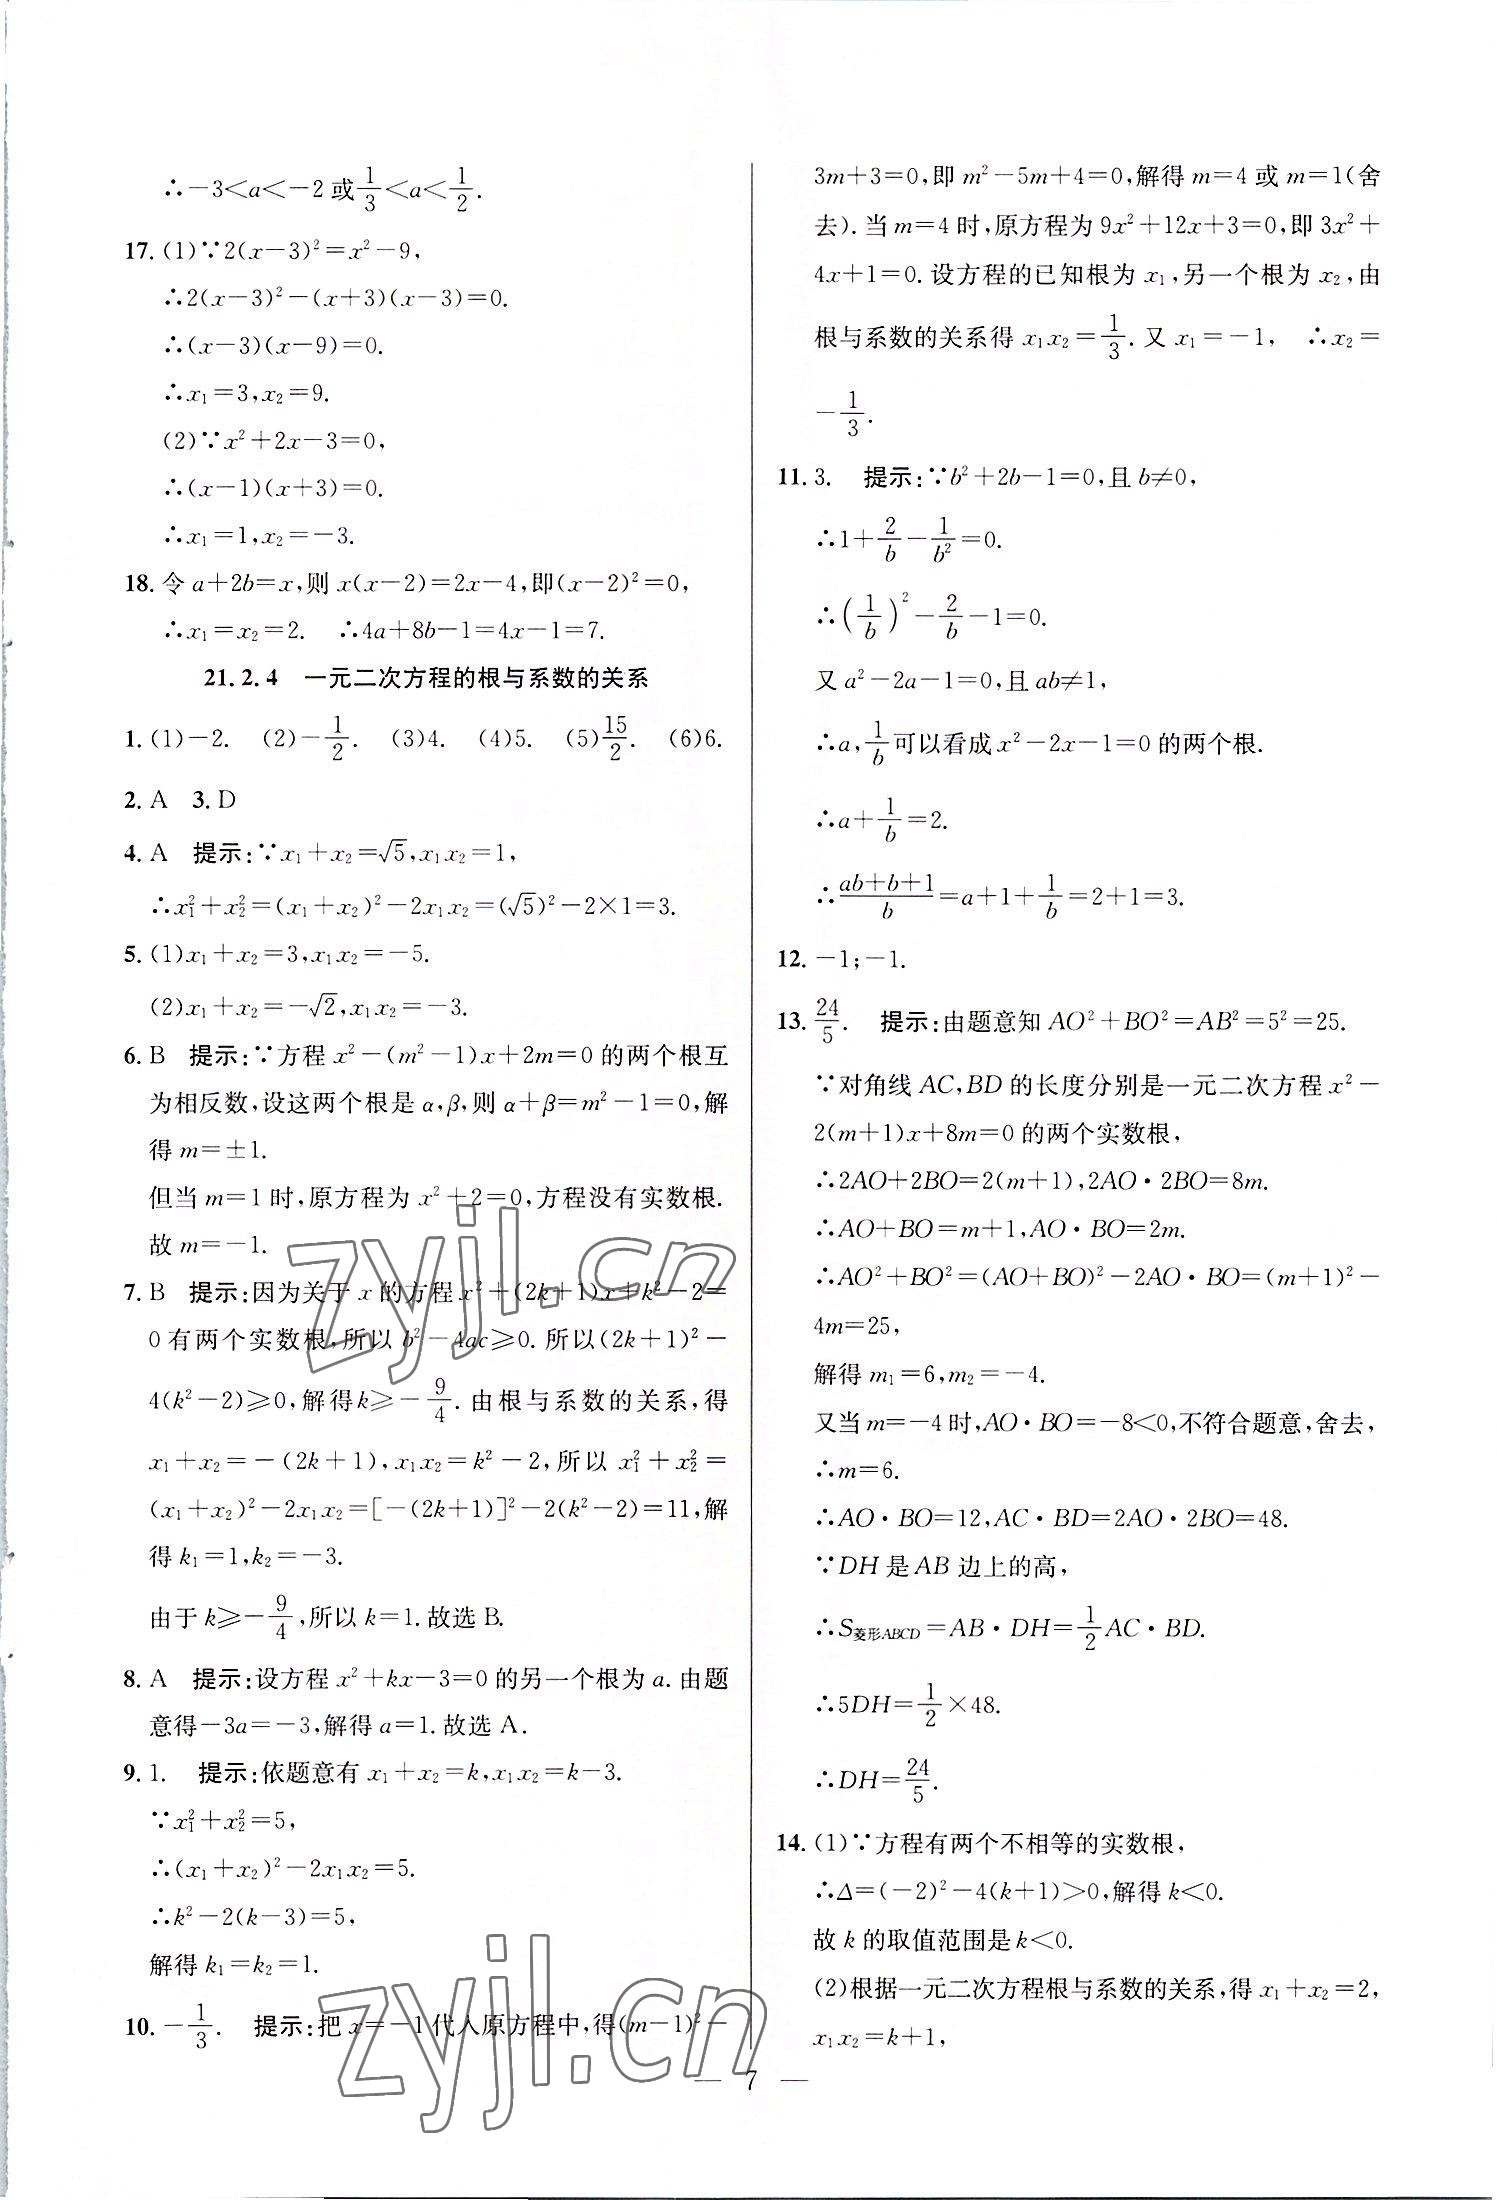 ∴−3<a<−2或1/3<a<1/2.
17. (1)∵2(x−3)²=x²−9,
∴2(x−3)²−(x+3)(x−3)=0.
∴(x−3)(x−9)=0.
∴x₁=3,x₂=9.
(2)∵x²+2x−3=0,
∴(x−1)(x+3)=0.
∴x₁=1,x₂=−3.
18. 令a+2b=x,则x(x−2)=2x−4,即(x−2)²=0,
∴x₁=x₂=2. ∴4a+8b−1=4x−1=7.
21.2.4 一元二次方程的根与系数的关系
1. (1)−2. (2)−1/2. (3)4. (4)5. (5)15/2. (6)6.
2. A 3. D
4. A 提示:∵x₁+x₂=√5,x₁x₂=1,
∴x₁²+x₂²=(x₁+x₂)²−2x₁x₂=(√5)²−2×1=3.
5. (1)x₁+x₂=3,x₁x₂=−5.
(2)x₁+x₂=−√2,x₁x₂=−3.
6. B 提示:∵方程x²−(m²−1)x+2m=0的两个根互
为相反数,设这两个根是α,β,则α+β=m²−1=0,解
得m=±1.
但当m=1时,原方程为x²+2=0,方程没有实数根.
故m=−1.
7. B 提示:因为关于x的方程x²+(2k+1)x+k²−2=
0有两个实数根,所以b²−4ac≥0.所以(2k+1)²−
4(k²−2)≥0,解得k≥−9/4.由根与系数的关系,得
x₁+x₂=−(2k+1),x₁x₂=k²−2,所以x₁²+x₂²=
(x₁+x₂)²−2x₁x₂=[−(2k+1)]²−2(k²−2)=11,解
得k₁=1,k₂=−3.
由于k≥−9/4,所以k=1.故选B.
8. A 提示:设方程x²+kx−3=0的另一个根为a.由题
意得−3a=−3,解得a=1.故选A.
9. 1. 提示:依题意有x₁+x₂=k,x₁x₂=k−3.
∵x₁²+x₂²=5,
∴(x₁+x₂)²−2x₁x₂=5.
∴k²−2(k−3)=5,
解得k₁=k₂=1.
10. −1/3. 提示:把x=−1代人原方程中,得(m−1)²−
3m+3=0,即m²−5m+4=0,解得m=4或m=1(舍
去).当m=4时,原方程为9x²+12x+3=0,即3x²+
4x+1=0.设方程的已知根为x₁,另一个根为x₂,由
根与系数的关系得x₁x₂=1/3.又x₁=−1, ∴x₂=
−1/3.
11. 3. 提示:∵b²+2b−1=0,且b≠0,
∴1+2/b−1/b²=0.
∴(1/b)²−2/b−1=0.
又a²−2a−1=0,且ab≠1,
∴a,1/b可以看成x²−2x−1=0的两个根.
∴a+1/b=2.
∴(ab+b+1)/b=a+1+1/b=2+1=3.
12. −1;−1.
13. 24/5. 提示:由题意知AO²+BO²=AB²=5²=25.
∵对角线AC,BD的长度分别是一元二次方程x²−
2(m+1)x+8m=0的两个实数根,
∴2AO+2BO=2(m+1),2AO·2BO=8m.
∴AO+BO=m+1,AO·BO=2m.
∴AO²+BO²=(AO+BO)²−2AO·BO=(m+1)²−
4m=25,
解得m₁=6,m₂=−4.
又当m=−4时,AO·BO=−8<0,不符合题意,舍去,
∴m=6.
∴AO·BO=12,AC·BD=2AO·2BO=48.
∵DH是AB边上的高,
∴S菱形ABCD=AB·DH=1/2AC·BD.
∴5DH=1/2×48.
∴DH=24/5.
14. (1)∵方程有两个不相等的实数根,
∴Δ=(−2)²−4(k+1)>0,解得k<0.
故k的取值范围是k<0.
(2)根据一元二次方程根与系数的关系,得x₁+x₂=2,
x₁x₂=k+1,
— 7 —
zyjl.cn
zyjl.cn